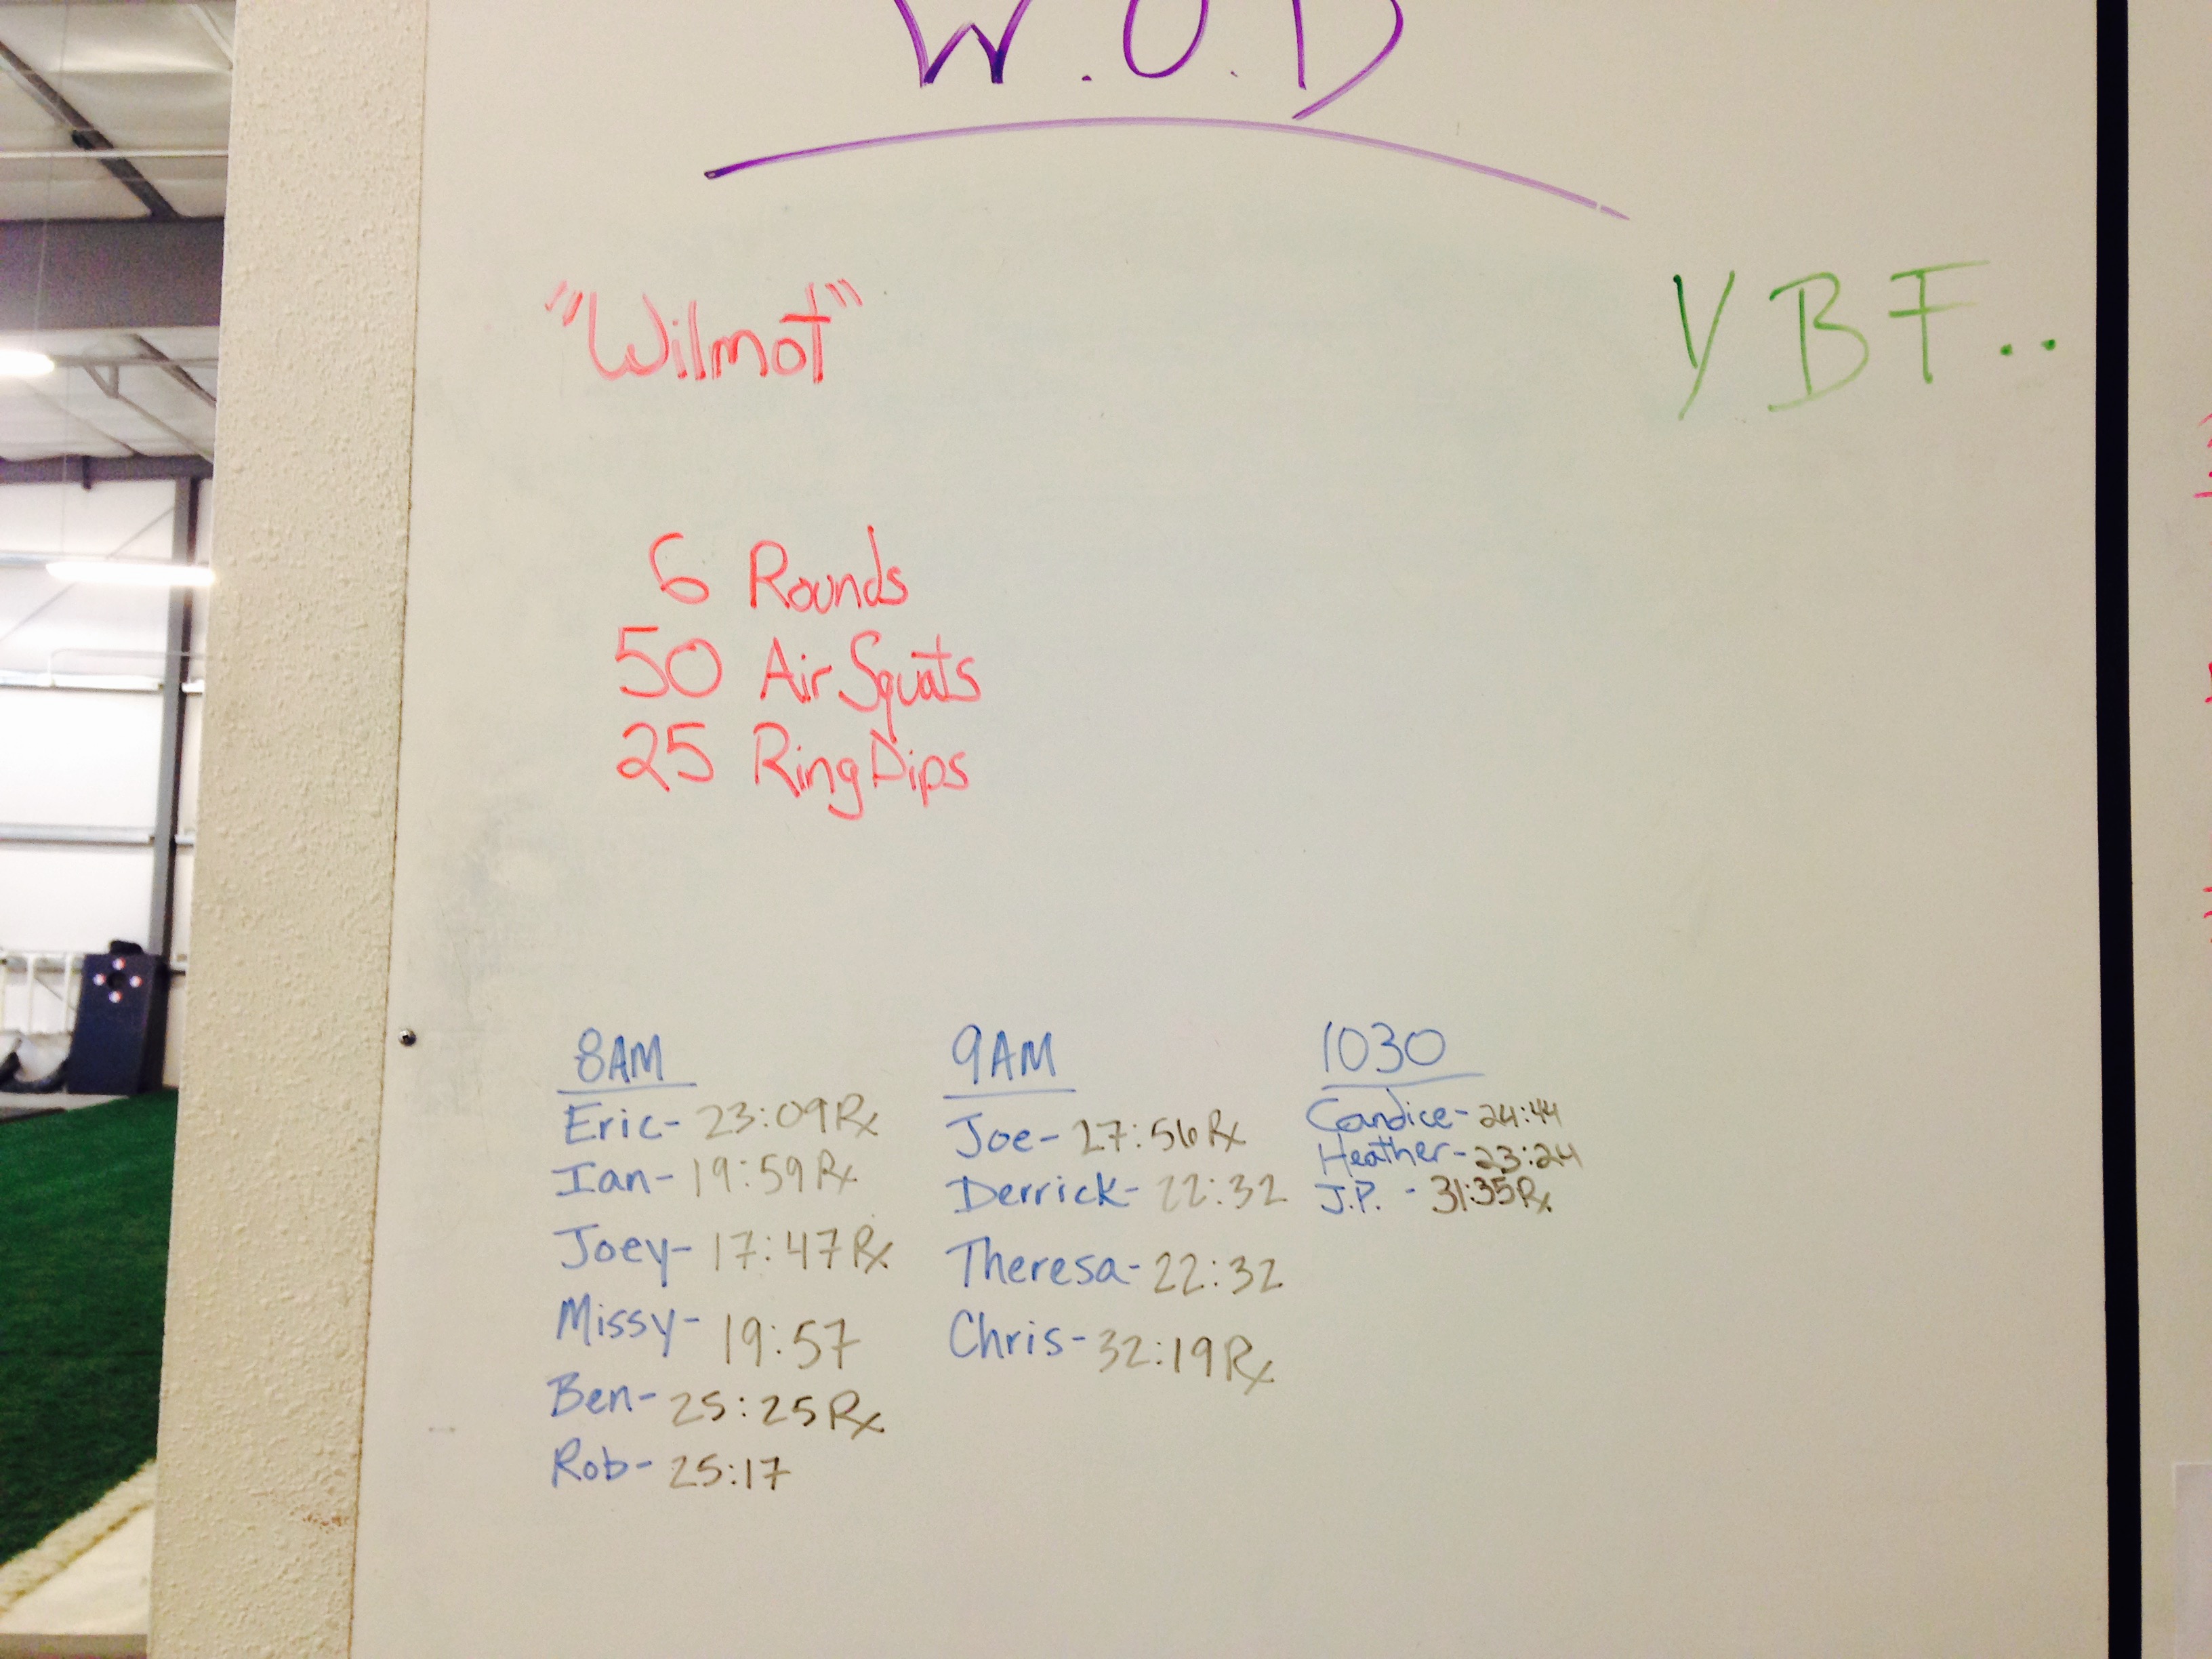 W.O.D
"Wilmot"
YBF..
6 Rounds
50 Air Squats
25 Ring Dips
8AM
Eric- 23:09 Rx
Ian- 19:59 Rx
Joey- 17:47 Rx
Missy- 19:57
Ben- 25:25 Rx
Rob- 25:17
9AM
Joe- 27:56 Rx
Derrick- 22:32
Theresa- 22:32
Chris- 32:19 Rx
1030
Candice- 24:44
Heather- 23:24
J.P. - 31:35 Rx